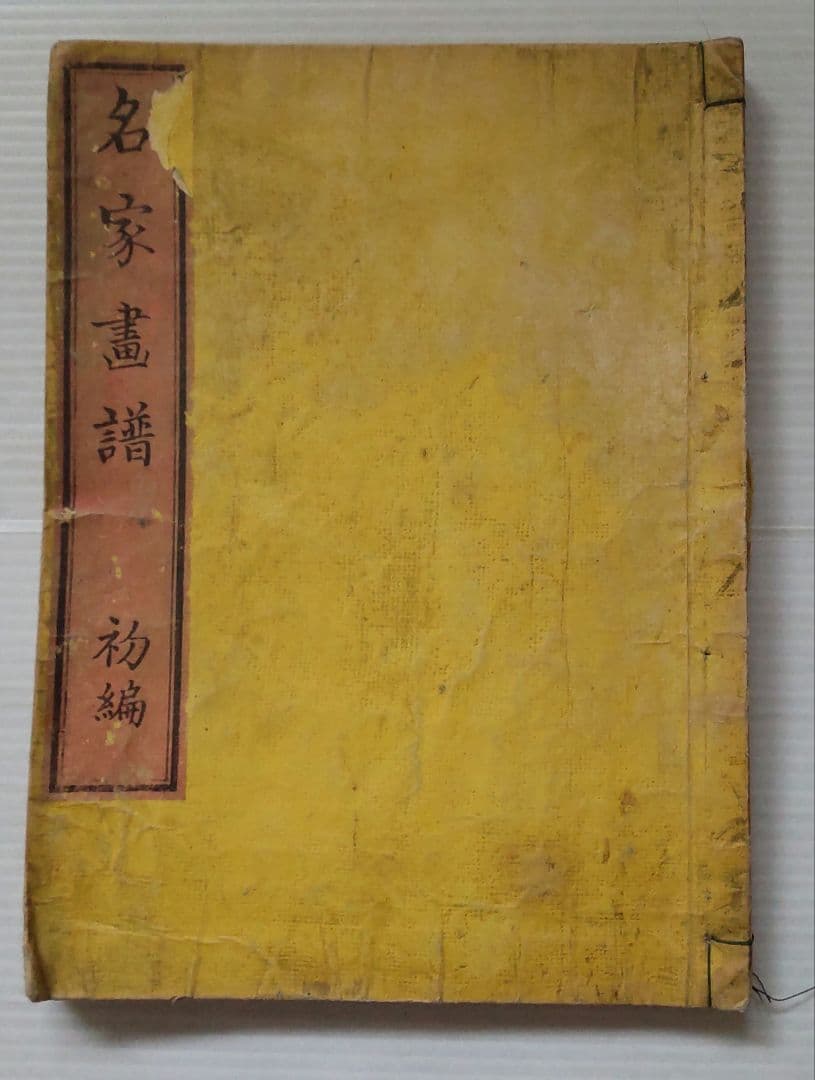 名家畫譜 初編